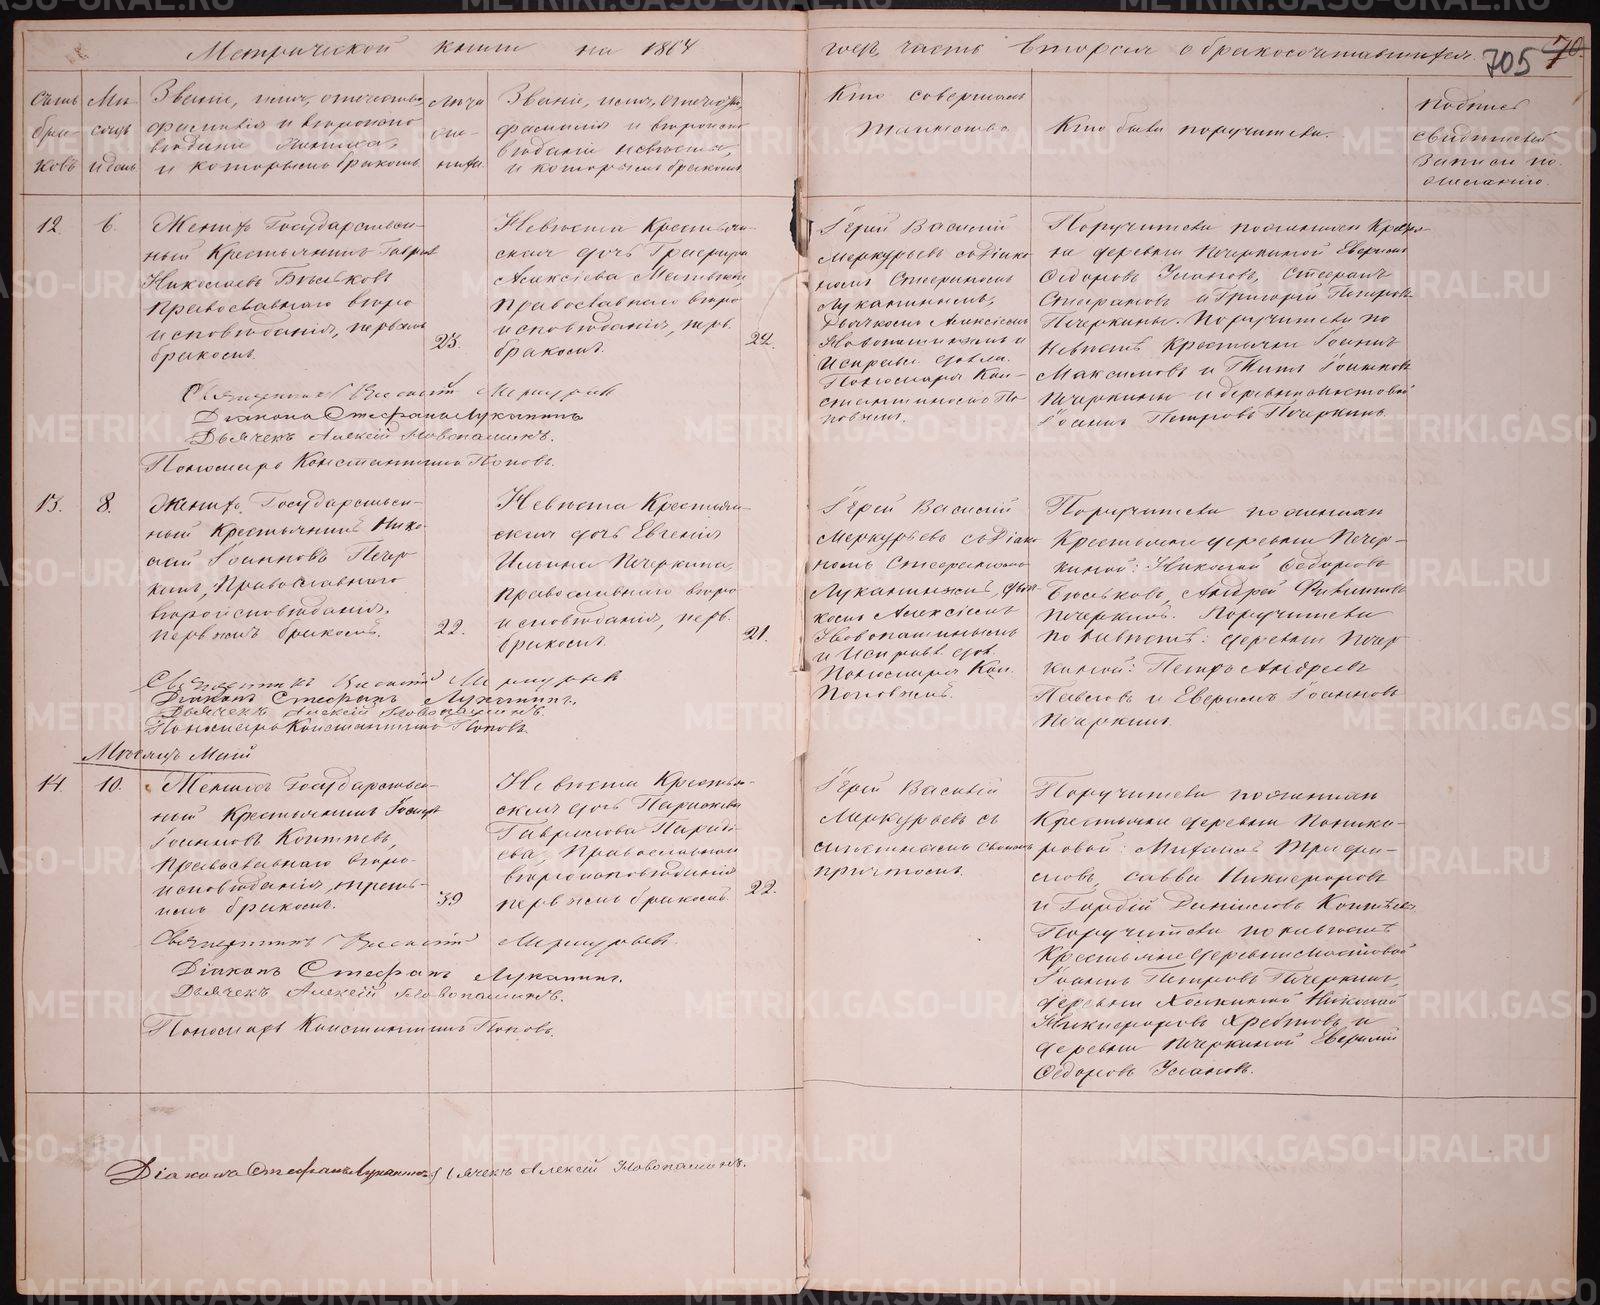 Метрической книги на 1864
годъ, часть вторая о бракосочетавшихся.
705
70.
Счетъ браковъ
Мѣсяцъ и день
Званіе, имя, отчество,
фамилія и вѣроиспо-
вѣданіе жениха,
и которымъ бракомъ
лѣта
жениха
Званіе, имя, отчество,
фамилія и вѣроиспо-
вѣданіе невѣсты,
и которымъ бракомъ
Кто совершалъ
таинство
Кто были поручители.
Подпись
свидѣтелей
записи по
желанію.
12.
6.
Женихъ Государствен-
ный Крестьянинъ Гаврилъ
Николаевъ
Православнаго вѣро
исповѣданія, первымъ
бракомъ.
23.
Невѣста Крестьян-
ская дочь
Алексіева
Православнаго вѣро
исповѣданія, перв.
бракомъ.
22.
Іерей Василій
Меркурьевъ съ Діако
номъ Стефаномъ
Лукανинымъ,
Дьячкомъ Алексіемъ
Новопашинымъ и
Исправл. дол.
Пономаря Кон-
стантиномъ По-
повымъ.
Поручители по женихѣ Кресть-
яне деревни Печеркиной
Ѳедоровъ Улановъ, Стефанъ
и Григорій Петровъ
Печеркины. Поручители по
Невѣстѣ Крестьяне Іоаннъ
Максимовъ и Титъ
Печеркины и деревни Мостовой
Іоаннъ Петровъ Печеркинъ.
Священникъ Василій Меркурьевъ
Діаконъ Стефанъ Луканинъ
Дьячекъ Алексій Новопашинъ.
Пономарь Константинъ Поповъ.
13.
8.
Женихъ Государствен-
ный Крестьянинъ Нико-
лай Іоанновъ Печер
кинъ, Православнаго
вѣроисповѣданія.
первымъ бракомъ.
22.
Невѣста Крестьян-
ская дочь Евгенія
Ильина Печеркина,
православнаго вѣро
исповѣданія, перв.
бракомъ.
21.
Іерей Василій
Меркурьевъ съ Діако
номъ Стефаномъ
Луканинымъ, Дьяч-
комъ Алексіемъ
Новопашинымъ
и Исправл. дол.
Пономаря Кон.
Поповымъ.
Поручители по женихѣ
Крестьяне деревни Печер-
киной: Николай Ѳедоровъ
Андрей
Печеркинъ. Поручители
по невѣстѣ: деревни Печер
киной: Петръ Андреевъ
и Іоанновъ
Печеркинъ.
Священникъ Василій Меркурьевъ
Діаконъ Стефанъ Луканинъ.
Дьячекъ Алексій Новопашинъ.
Пономарь Константинъ Поповъ.
Мѣсяцъ Май
14.
10.
Женихъ Государствен-
ный Крестьянинъ
Іоанновъ Коптяевъ,
Православнаго вѣро-
исповѣданія, треть-
имъ бракомъ.
39
Невѣста Крестьян-
ская дочь Параскева
Гаврилова
Православнаго
вѣроисповѣданія
первымъ бракомъ.
22.
Іерей Василій
Меркурьевъ съ
своимъ
причтомъ.
Поручители по женихѣ
Крестьяне деревни
Михаилъ
Савва Никифоровъ
и Гордій Даниловъ Коптяевы.
Поручители по невѣстѣ
Крестьяне деревни Мостовой
Іоаннъ Петровъ Печеркинъ,
деревни Николай
Никифоровъ и
деревни Печеркиной
Ѳедоровъ Улановъ.
Священникъ Василій Меркурьевъ.
Діаконъ Стефанъ Луканинъ.
Дьячекъ Алексій Новопашинъ.
Пономарь Константинъ Поповъ.
Діаконъ Стефанъ Луканинъ Дьячекъ Алексій Новопашинъ.
METRIKI.GASO-URAL.RU